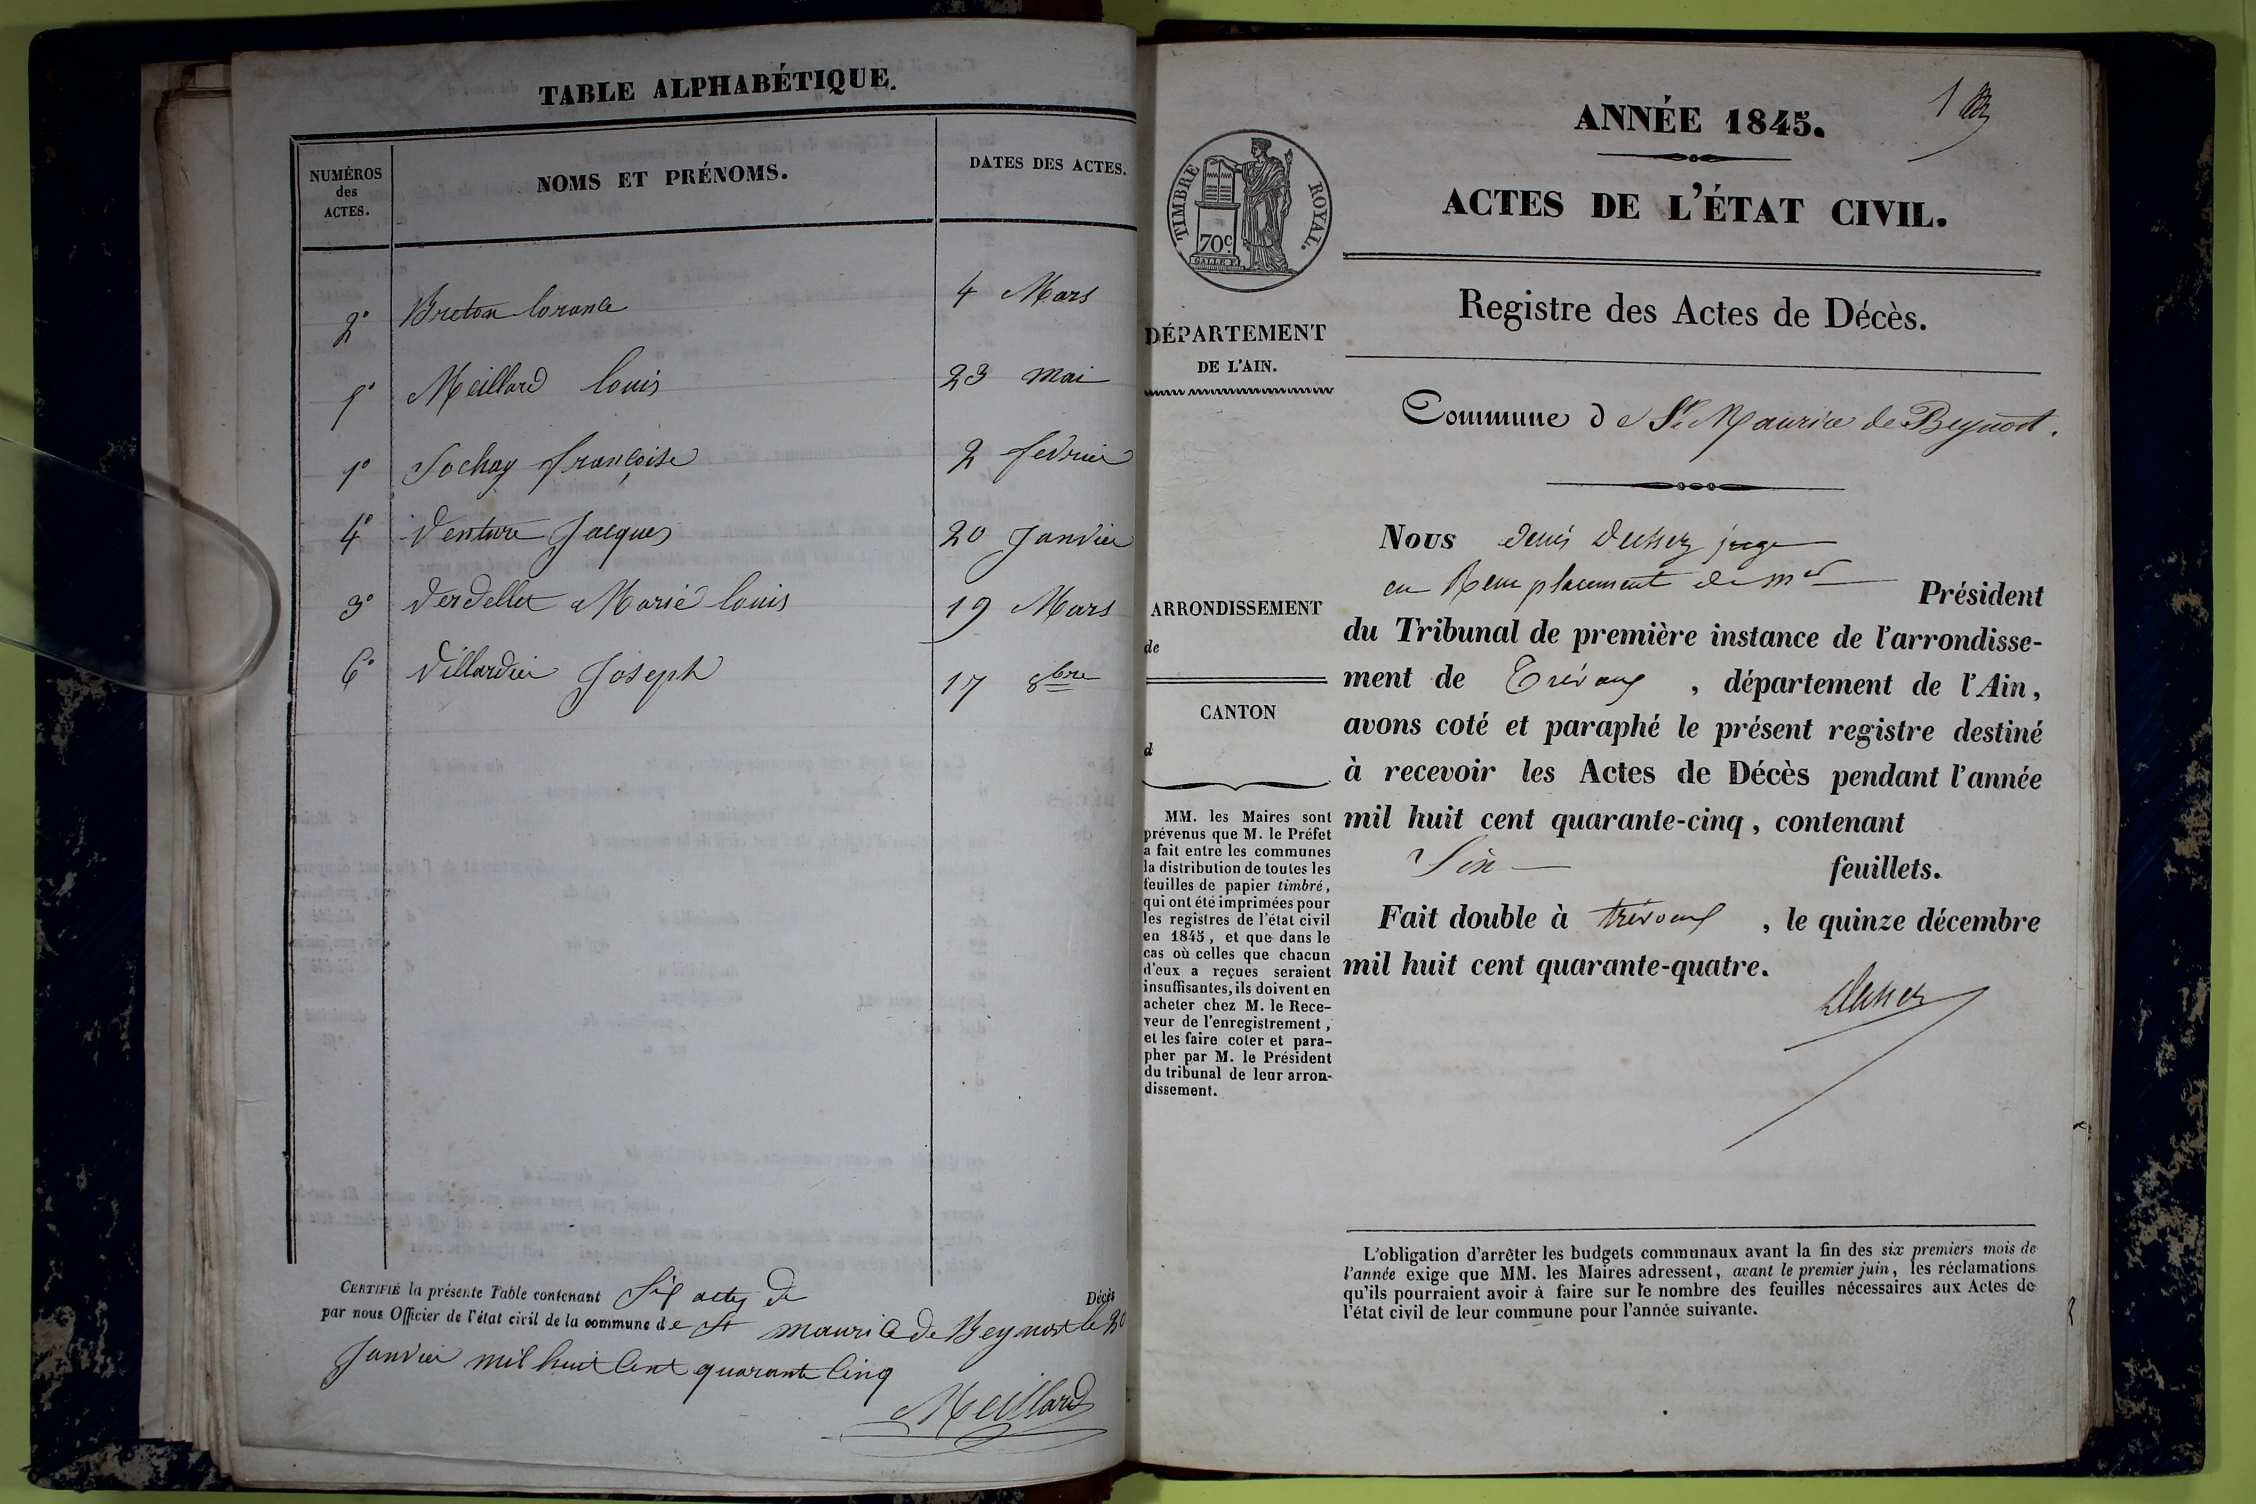 TABLE ALPHABÉTIQUE.
NUMÉROS
des
ACTES.
NOMS ET PRÉNOMS.
DATES DES ACTES.
2° Breton lorance 4 Mars
5° Meillard louis 23 mai
1° Sochay françoise 2 fevrier
4° Venture Jacques 20 Janvier
3° Verdellet Marie louis 19 Mars
6° Villardier Joseph 17 8bre
CERTIFIÉ la présente Table contenant Six actes de Décès
par nous Officier de l'état civil de la commune de St maurice de Beynost le 20
Janvier mil huit Cent quarante Cinq
Meillard
1
ANNÉE 1845.
ACTES DE L'ÉTAT CIVIL.
TIMBRE ROYAL.
70c.
Registre des Actes de Décès.
DÉPARTEMENT
DE L'AIN.
Commune de St. Maurice de Beynost.
ARRONDISSEMENT
de
CANTON
d
MM. les Maires sont
prévenus que M. le Préfet
a fait entre les communes
la distribution de toutes les
feuilles de papier timbré,
qui ont été imprimées pour
les registres de l'état civil
en 1845, et que dans le
cas où celles que chacun
d'eux a reçues seraient
insuffisantes, ils doivent en
acheter chez M. le Rece-
veur de l'enregistrement,
et les faire coter et para-
pher par M. le Président
du tribunal de leur arron-
dissement.
Nous denis juge
en Remplacement de mr Président
du Tribunal de première instance de l'arrondisse-
ment de Trévoux, département de l'Ain,
avons coté et paraphé le présent registre destiné
à recevoir les Actes de Décès pendant l'année
mil huit cent quarante-cinq, contenant
Six feuillets.
Fait double à trévoux, le quinze décembre
mil huit cent quarante-quatre.
L'obligation d'arrêter les budgets communaux avant la fin des six premiers mois de
l'année exige que MM. les Maires adressent, avant le premier juin, les réclamations
qu'ils pourraient avoir à faire sur le nombre des feuilles nécessaires aux Actes de
l'état civil de leur commune pour l'année suivante.